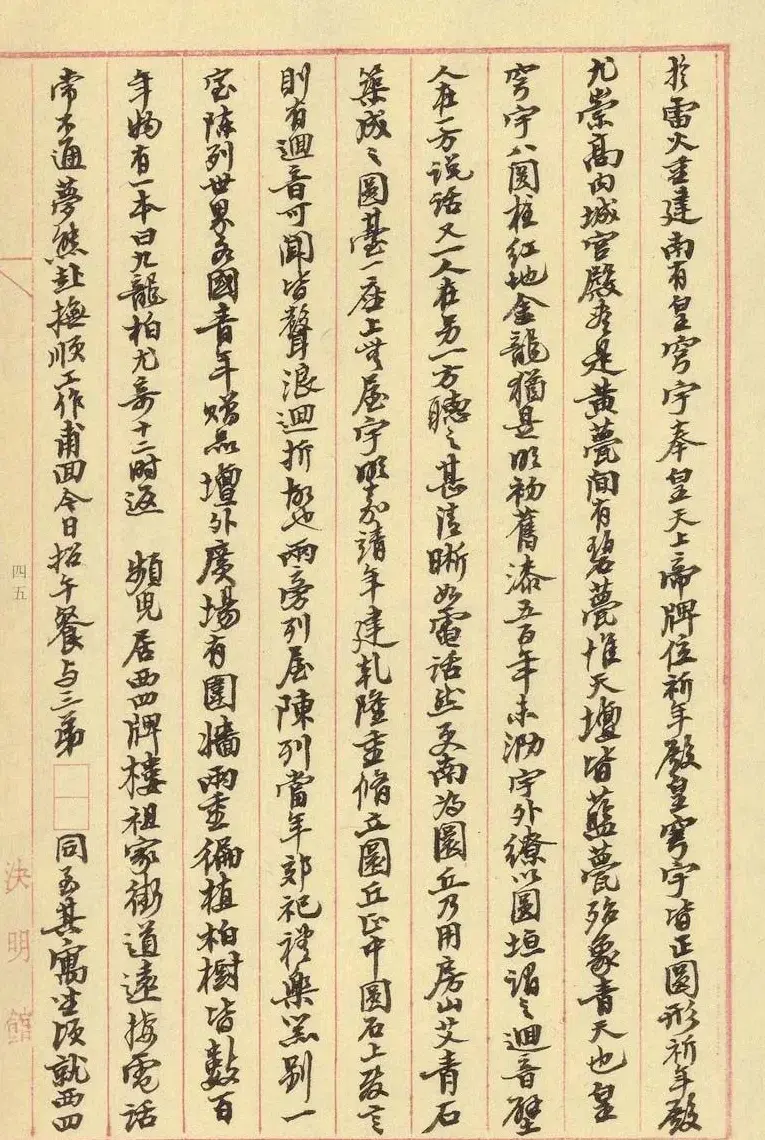 於雷火重建南有皇穹宇奉皇天上帝牌位祈年殿皇穹宇皆正圓形祈年殿
尤崇高内城宫殿盡是黃甍间有碧甍惟天壇皆藍甍殆象青天也皇
穹宇八圓柱红地金龍猶是明初舊漆五百年未泐宇外繚以圓垣谓之迴音壁
人在一方说话又一人在另一方聽之甚清晰如電话然更南为圜丘乃用房山艾青石
築成之圆臺一座上無屋宇明嘉靖年建乹隆重脩立圜丘正中圆石上發言
則有迴音可聞皆聲浪迴折故也兩旁列屋陳列當年郊祀禮樂器别一
室陈列世界各國青年赠品壇外廣場有圍墻兩重徧植柏樹皆數百
年物有一本曰九龍柏尤奇十二时返 頻兒居西四牌樓祖家街道遠接電话
常不通夢熊赴撫順工作甫回今日招午餐与三弟□□同至其寓坐顷就西四
四五
決明館